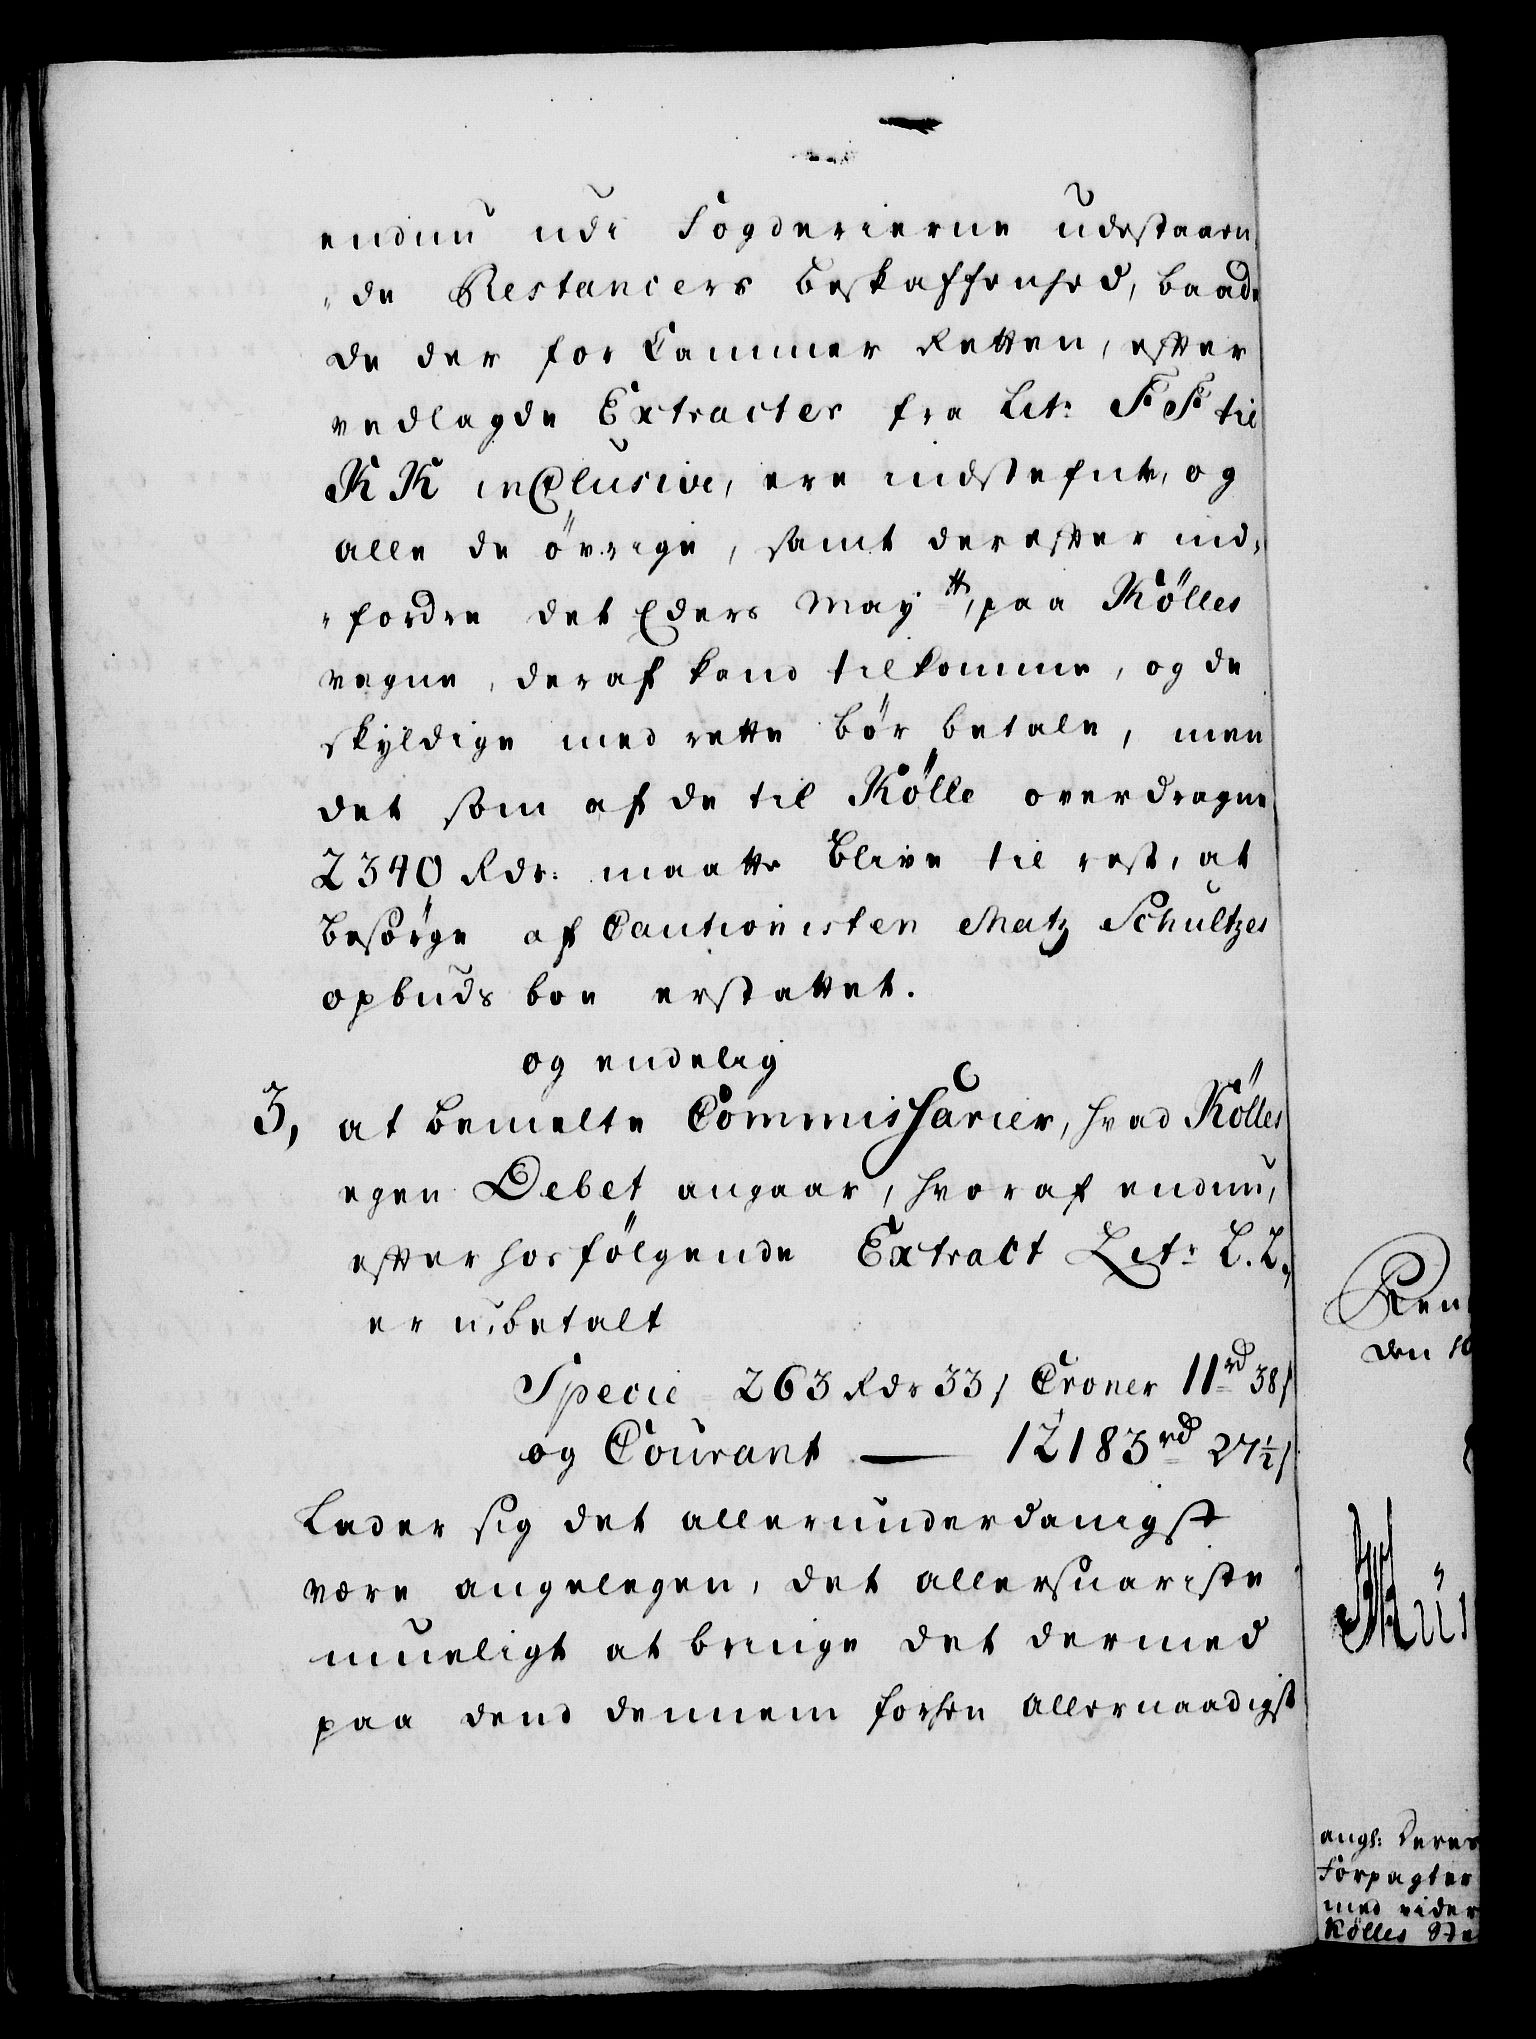 endnu udi Fogderierne udestaaen
„de Restancers beskaffenhed, baade
de der for Cammer Retten, efter
vedlagde Extracter fra Lit: FF til
KK inclusive, ere indstefnte, og
alle de övrige, samt derefter ind„
„fordre det Eders Maytt, paa Kölles
vegne, deraf kand tilkomme, og de
skyldige med rette bör betale, men
det som af de til Kölle overdragne
2340 Rdr: maatte blive til rest, at
besörge af Cautionisten Matz Schultzes
opbuds boe erstattet.
og endelig
3, at bemelte Commissarier, hvad Kölles
egen Debet angaar, hvoraf endnu,
efter hosfölgende Extract Litr L.L.
er ubetalt
Specie 263 Rdr 33 s Croner 11rd 38 s
og Courant — 12183rd 27½ s
Lader sig det allerunderdanigst
være angelegen, det allersnariste
mueligt at bringe det dermed
paa dend dennem forhen allernaadigst
Ren
den 10
angl: Deres
Forpagter
med vider
Kölles